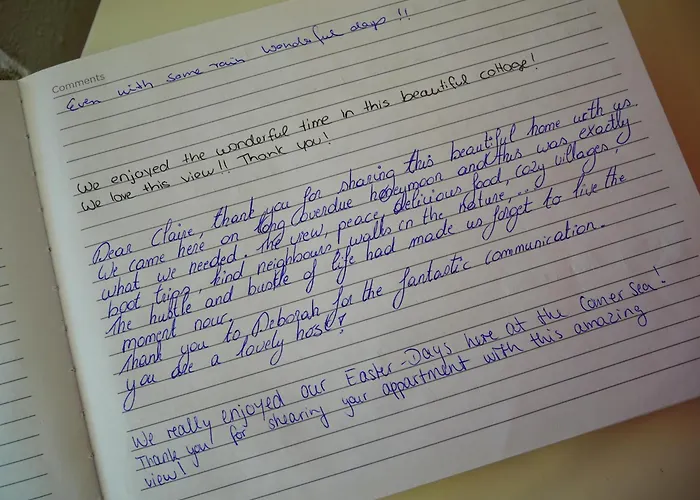 Comments
Even with some rain wonderful days !!
We enjoyed the wonderful time in this beautiful cottage!
We love this view!! Thank you!
Dear Claire, thank you for sharing this beautiful home with us.
We came here on long overdue honeymoon and this was exactly
what we needed. The view, peace, delicious food, cozy villages,
boat tripp, kind neighbours, walks in the nature,...
The hustle and bustle of life had made us forget to live the
moment nour.
Thank you to Deborah for the fantastic communication.
you are a lovely host!
We really enjoyed our Easter-Days here at the Comer sea!
Thank you for shearing your appartment with this amazing
view!